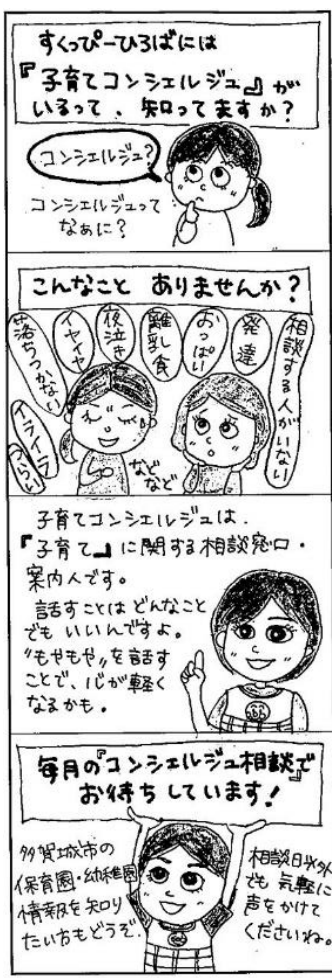 すくっぴーひろばには
『子育てコンシェルジュ』が
いるって、知ってますか？
コンシェルジュ？
コンシェルジュって
なぁに？
こんなこと ありませんか？
相談する人がいない
発達
おっぱい
離乳食
夜泣き
イヤイヤ
落ちつかない
イライラ
ついつい
などなど
子育てコンシェルジュは、
『子育て』に関する相談窓口・
案内人です。
話すことは どんなこと
でも いいんですよ。
〝もやもや〟を話す
ことで、心が軽く
なるかも。
毎月の『コンシェルジュ相談』で
お待ちしています！
多賀城市の
保育園・幼稚園
情報を知り
たい方もどうぞ。
相談日以外
でも 気軽に
声をかけて
くださいね。